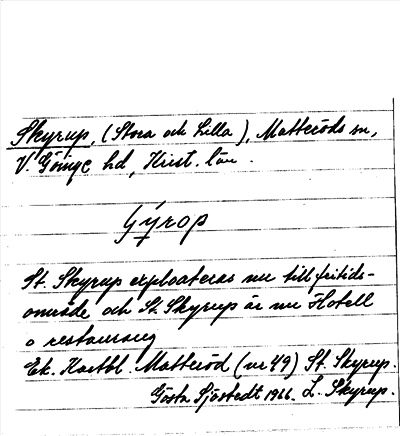 Skyrup, (Stora och Lilla), Matteröds sn,
V. Göinge hd, Krist. län.
Gyrop
St. Skyrup exploateras nu till fritids-
område och St. Skyrup är nu Hotell
o restaurang
Ek. Kartbl. Matteröd (nr 49) St. Skyrup.
Gösta Sjöstedt 1966. L. Skyrup.